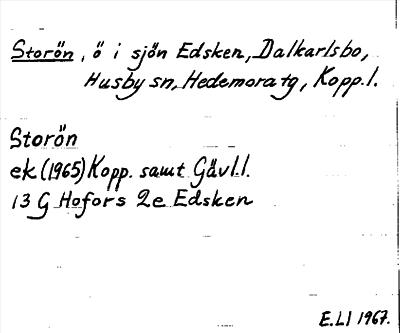 Storön, ö i sjön Edsken, Dalkarlsbo,
Husby sn, Hedemora tg, Kopp.l.
Storön
ek (1965) Kopp. samt Gävl.l.
13 G Hofors 2e Edsken
E.LI 1967.